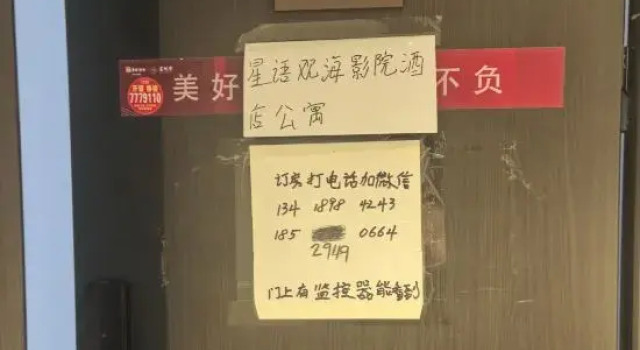 美好
不负
7779110
星语观海影院酒
店公寓
订房打电话加微信
134 1898 4243
185 2949 0664
门上有监控器能看到